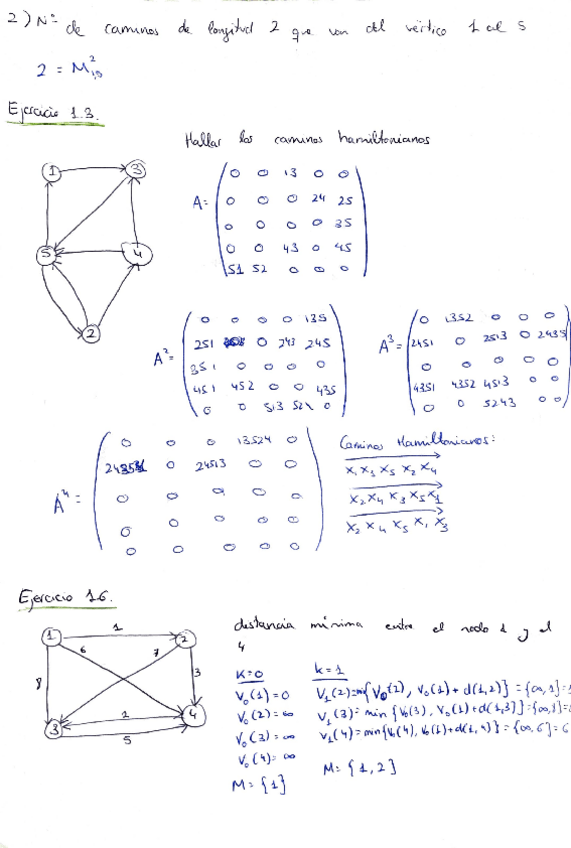 2) Nº de caminos de longitud 2 que van del vértice 1 al 5
2 = M²₁,₅
Ejercicio 1.3.
Hallar los caminos hamiltonianos
1 3
5 4
2
A=
0 0 13 0 0
0 0 0 24 25
0 0 0 0 35
0 0 43 0 45
51 52 0 0 0
A²=
0 0 0 0 135
251 0 243 245
351 0 0 0 0
451 452 0 0 435
0 0 513 524 0
A³=
0 1352 0 0 0
2451 0 2513 0 2435
0 0 0 0 0
4351 4352 4513 0 0
0 0 5243 0 0
A⁴=
0 0 0 13524 0
24351 0 24513 0 0
0 0 0 0 0
0 0 0 0 0
0 0 0 0 0
Caminos Hamiltonianos:
X₁ X₃ X₅ X₂ X₄
X₂ X₄ X₃ X₅ X₁
X₂ X₄ X₅ X₁ X₃
Ejercicio 1.6.
distancia mínima entre el nodo 1 y el 4
1 1 2
6 7
8 3
2
3 5 4
K=0
V₀(1)=0
V₀(2)=∞
V₀(3)=∞
V₀(4)=∞
M={1}
k=1
V₁(2)=mín{V₀(2), V₀(1)+d(1,2)}={∞,1}=
V₁(3)=min{V₀(3), V₀(1)+d(1,3)}=
V₁(4)=min{V₀(4), V₀(1)+d(1,4)}={∞,6}=6
M={1,2}